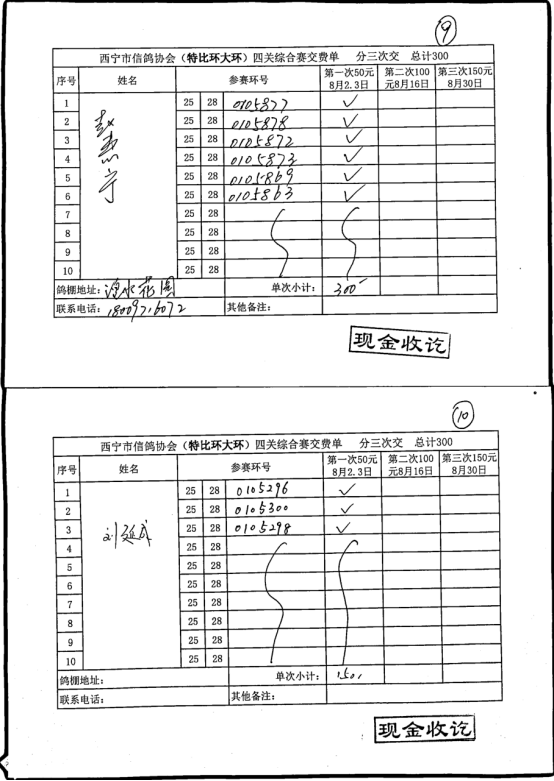 ⑨
西宁市信鸽协会（特比环大环）四关综合赛交费单 分三次交 总计300
序号 姓名 参赛环号 第一次50元8月2.3日 第二次100元8月16日 第三次150元8月30日
1 25 28 0105877 ✓
2 25 28 0105878 ✓
3 25 28 0105872 ✓
4 25 28 0105873 ✓
5 25 28 0105869 ✓
6 25 28 0105863 ✓
7 25 28
8 25 28
9 25 28
10 25 28
鸽棚地址： 花园 单次小计： 300
联系电话：18009716072 其他备注：
现金收讫
⑩
西宁市信鸽协会（特比环大环）四关综合赛交费单 分三次交 总计300
序号 姓名 参赛环号 第一次50元8月2.3日 第二次100元8月16日 第三次150元8月30日
1 25 28 0105296 ✓
2 25 28 0105300 ✓
3 刘延成 25 28 0105298 ✓
4 25 28
5 25 28
6 25 28
7 25 28
8 25 28
9 25 28
10 25 28
鸽棚地址： 单次小计： 150
联系电话： 其他备注：
现金收讫